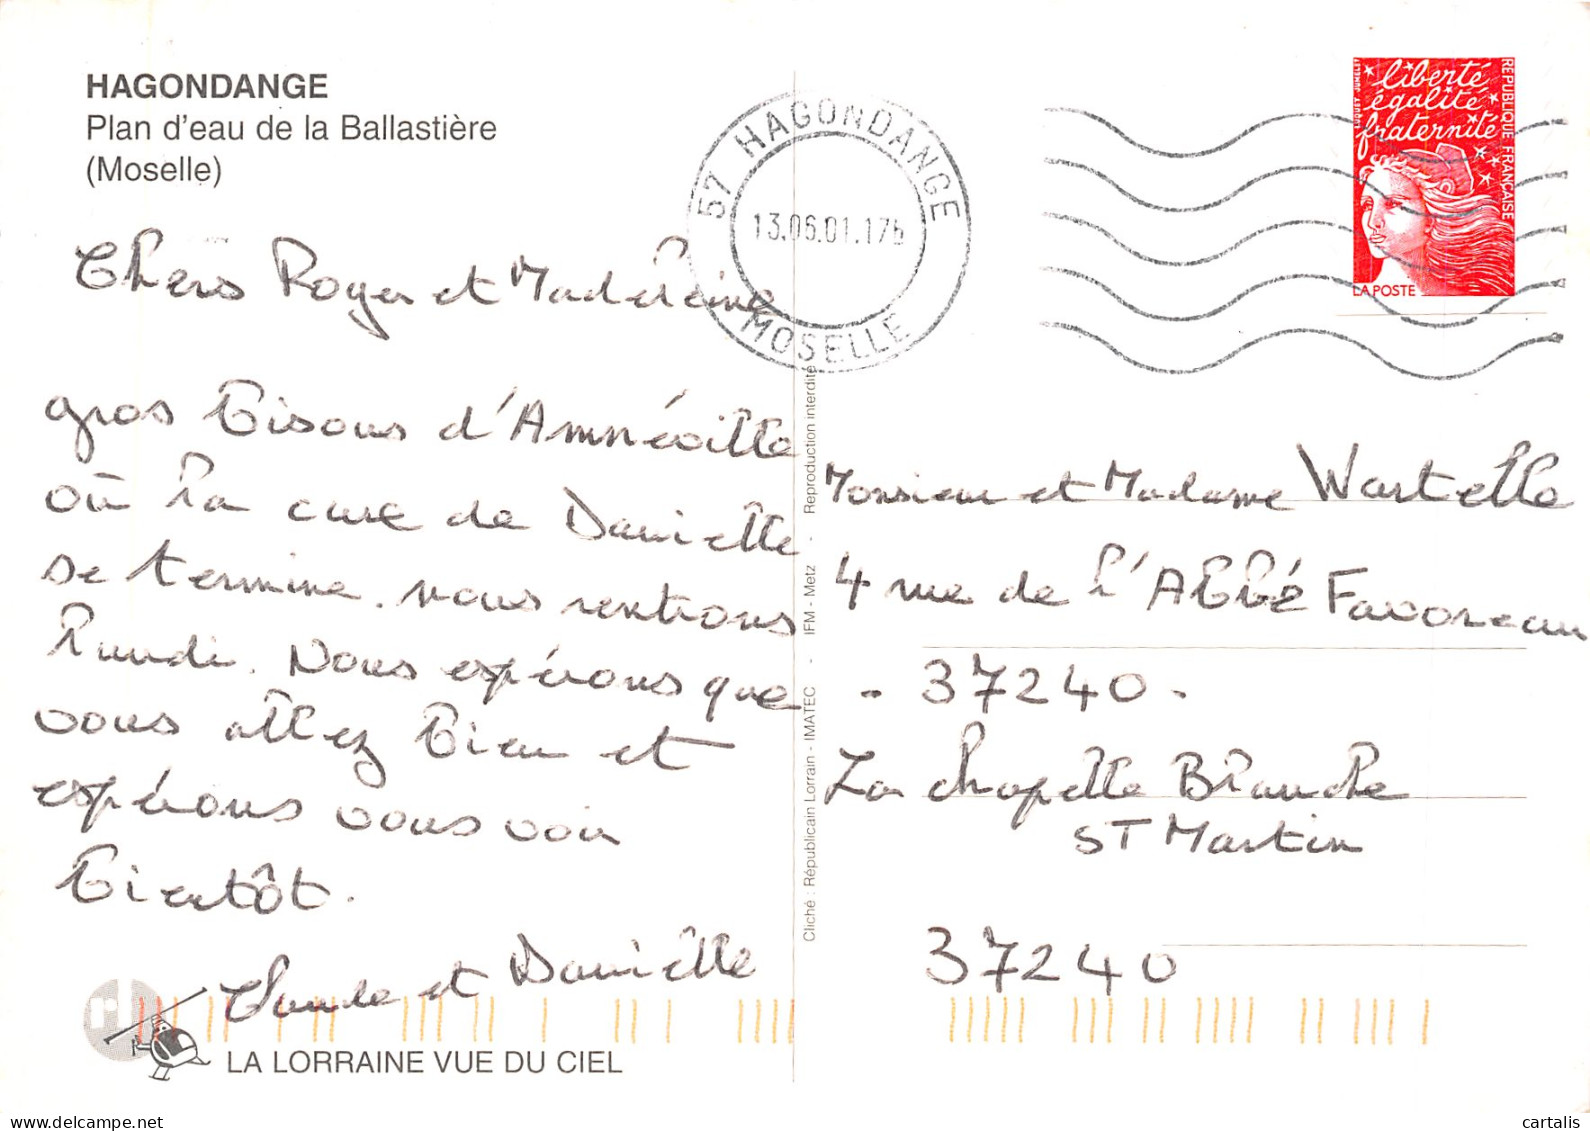 HAGONDANGE
Plan d'eau de la Ballastière
(Moselle)
57 HAGONDANGE
13.06.01.17h
MOSELLE
liberté
égalité
fraternité
REPUBLIQUE FRANÇAISE
LA POSTE
Chers Roger et Madeleine
gros bisous d'Amnéville
où la cure de Danielle
se termine. nous rentrons
lundi. Nous espérons que
vous allez bien et
espérons vous voir
bientôt.
Claude et Danielle
Cliché : Républicain Lorrain - IMATEC - IFM - Metz - Reproduction interdite
Monsieur et Madame Wartelle
4 rue de l'Abbé Favoreau
- 37240 -
La Chapelle Blanche
ST Martin
37240
rl
LA LORRAINE VUE DU CIEL
delcampe.net
cartalis